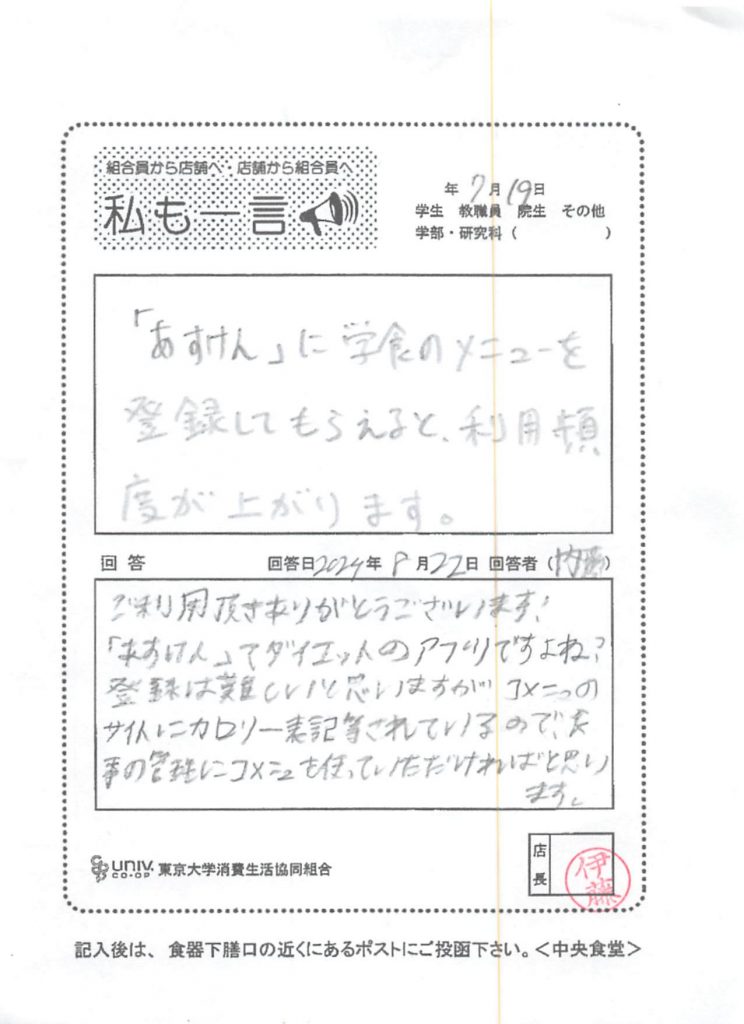 組合員から店舗へ・店舗から組合員へ
私も一言
年 7月 19日
学生 教職員 院生 その他
学部・研究科 ( )
「あすけん」に学食のメニューを
登録してもらえると、利用頻
度が上がります。
回答 回答日2024年 8月22日 回答者 (内藤)
ご利用頂きありがとうございます!
「あすけん」てダイエットのアプリですよね?
登録は難しいと思いますが コメニュの
サイトにカロリー表記等されているので、食
事の管理にコメニュも使っていただければと思い
ます。
univ. CO-OP 東京大学消費生活協同組合
店長
伊藤
記入後は、食器下膳口の近くにあるポストにご投函下さい。<中央食堂>